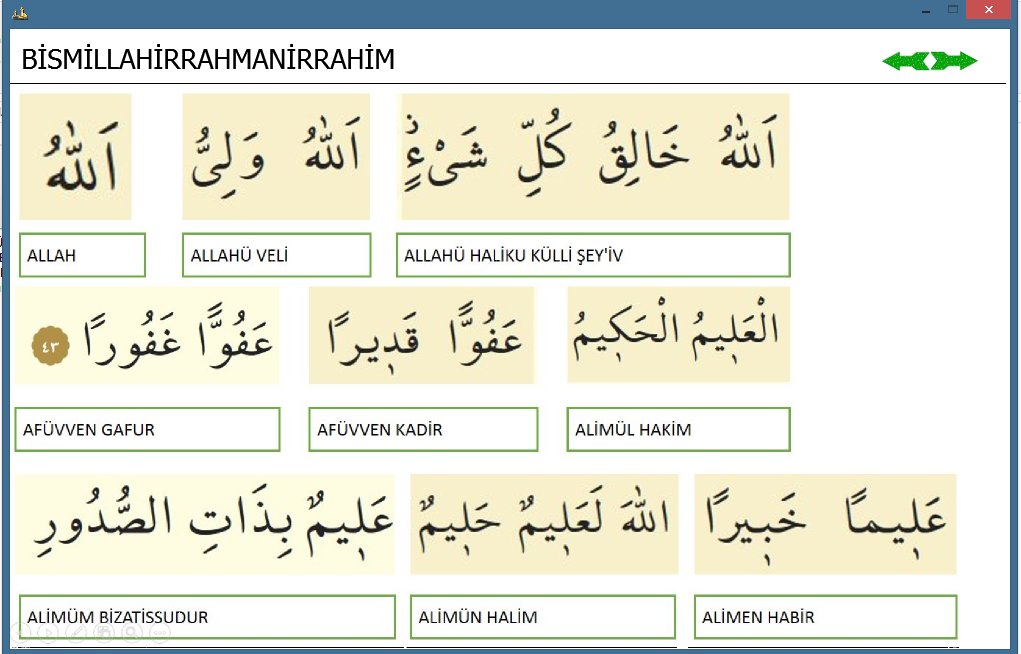 BİSMİLLAHİRRAHMANİRRAHİM
اَللّٰهُ
اَللّٰهُ وَلِىُّ
اَللّٰهُ خَالِقُ كُلِّ شَىْءٍۘ
ALLAH
ALLAHÜ VELİ
ALLAHÜ HALİKU KÜLLİ ŞEY'İV
عَفُوًّا غَفُورًا ٤٣
عَفُوًّا قَد۪يرًا
الْعَل۪يمُ الْحَك۪يمُ
AFÜVVEN GAFUR
AFÜVVEN KADİR
ALİMÜL HAKİM
عَل۪يمٌ بِذَاتِ الصُّدُورِ
اللّٰهَ لَعَل۪يمٌ حَل۪يمٌ
عَل۪يمًا خَب۪يرًا
ALİMÜM BİZATİSSUDUR
ALİMÜN HALİM
ALİMEN HABİR